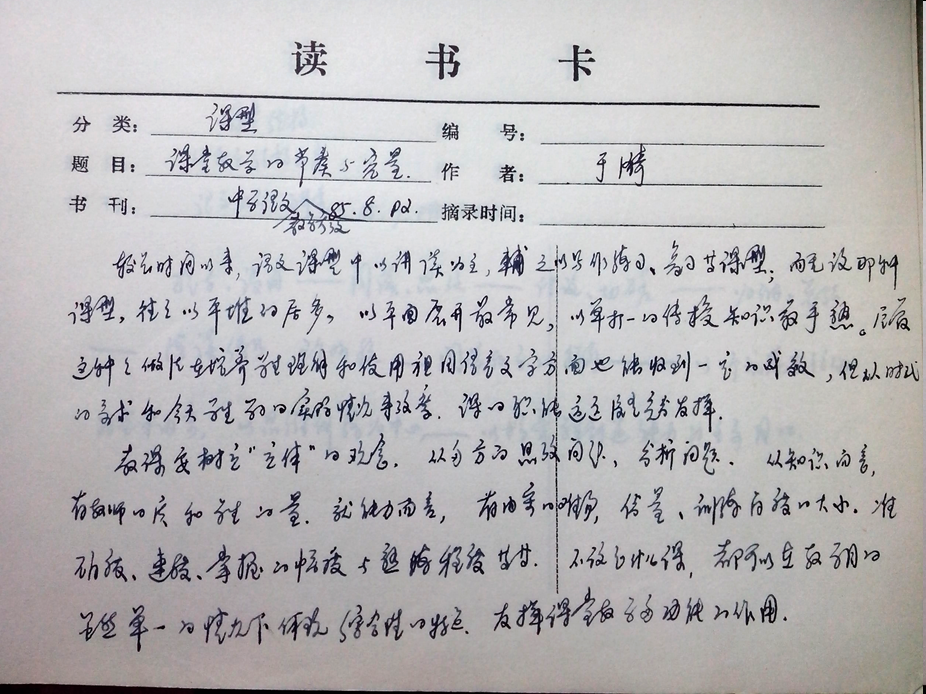 读书卡
分类： 课型 编号：
题目： 课堂教学的节奏与容量. 作者： 于漪
书刊： 中学语文 85.8. P2. 摘录时间：
教学
较长时间以来，语文课型中以讲读为主，辅之以写作练习、复习等课型，而无论那种
课型，往往以平推的居多，以平面展开最常见，以单打一的传授知识最手熟。尽管
这种种做法在培养学生理解和使用祖国语言文字方面也能收到一定的成效，但从时代
的要求和今天学生的实际情况来考察，课的职能远远没有充分发挥.
教课要树立"立体"的观念，从多方面思考问题、分析问题. 从知识而言，
有教师的 和学生的量. 就能力而言，有内容的难易，信量、训练 度的大小. 准
确度、速度、掌握的幅度与熟练程度等等. 不论上什么课，都可以在教学目的
虽然单一的情况下体现综合性的特点. 发挥课堂教学多功能的作用.